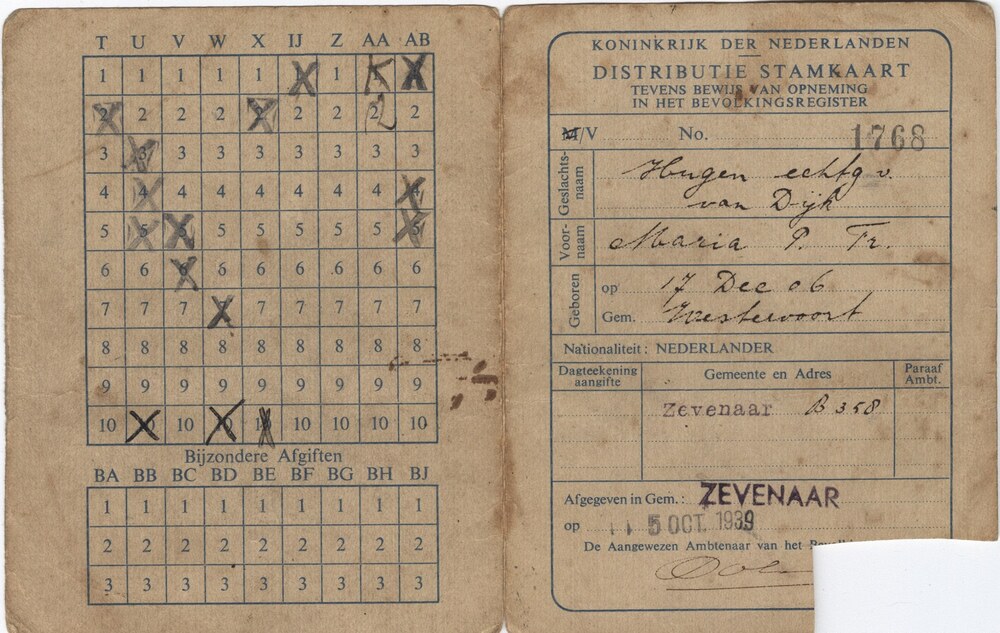 T U V W X IJ Z AA AB
1 1 1 1 1 1
2 2 2 2 2 2 2
3 3 3 3 3 3 3 3 3
4 4 4 4 4 4 4 4 4
5 5 5 5 5 5 5 5 5
6 6 6 6 6 6 6 6
7 7 7 7 7 7 7 7
8 8 8 8 8 8 8 8 8
9 9 9 9 9 9 9 9 9
10 10 10 10 10 10 10
Bijzondere Afgiften
BA BB BC BD BE BF BG BH BJ
1 1 1 1 1 1 1 1 1
2 2 2 2 2 2 2 2 2
3 3 3 3 3 3 3 3 3
KONINKRIJK DER NEDERLANDEN
DISTRIBUTIE STAMKAART
TEVENS BEWIJS VAN OPNEMING
IN HET BEVOLKINGSREGISTER
M/V No. 1768
Geslachts-naam
Hugen echtg v.
van Dijk
Voor-naam
Maria P. Tr.
Geboren
op 17 Dec 06
Gem. Westervoort
Nationaliteit: NEDERLANDER
Dagteekening aangifte
Gemeente en Adres
Paraaf Ambt.
Zevenaar B 358
Afgegeven in Gem.: ZEVENAAR
op 5 OCT. 1939
De Aangewezen Ambtenaar van het